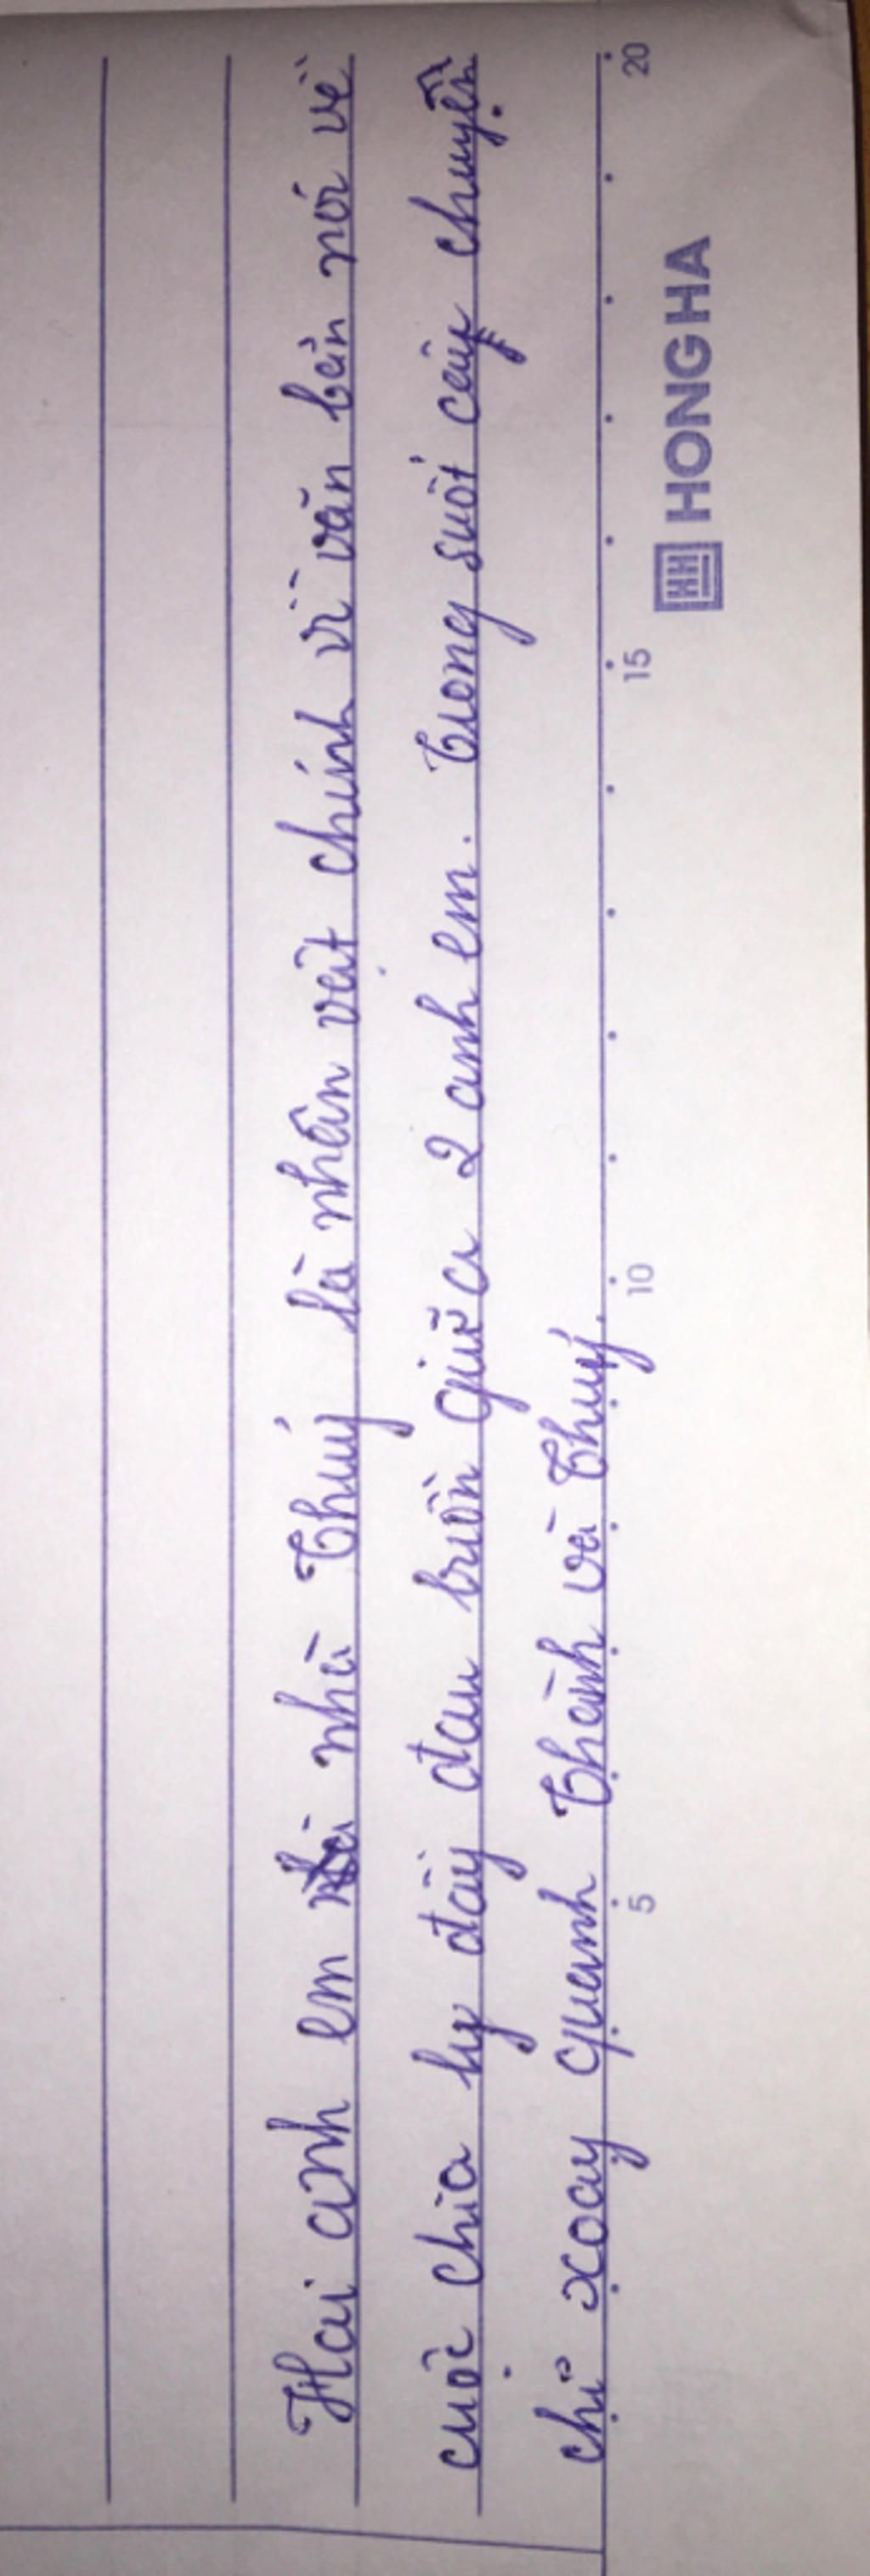 Hai anh em nhà Thuỷ là nhân vật chính vì văn bản nói về
cuộc chia ly đầy đau buồn giữa 2 anh em. Trong suốt câu chuyện
chỉ xoay quanh Thành và Thuỷ.
5 10 15 20
HH HONG HA